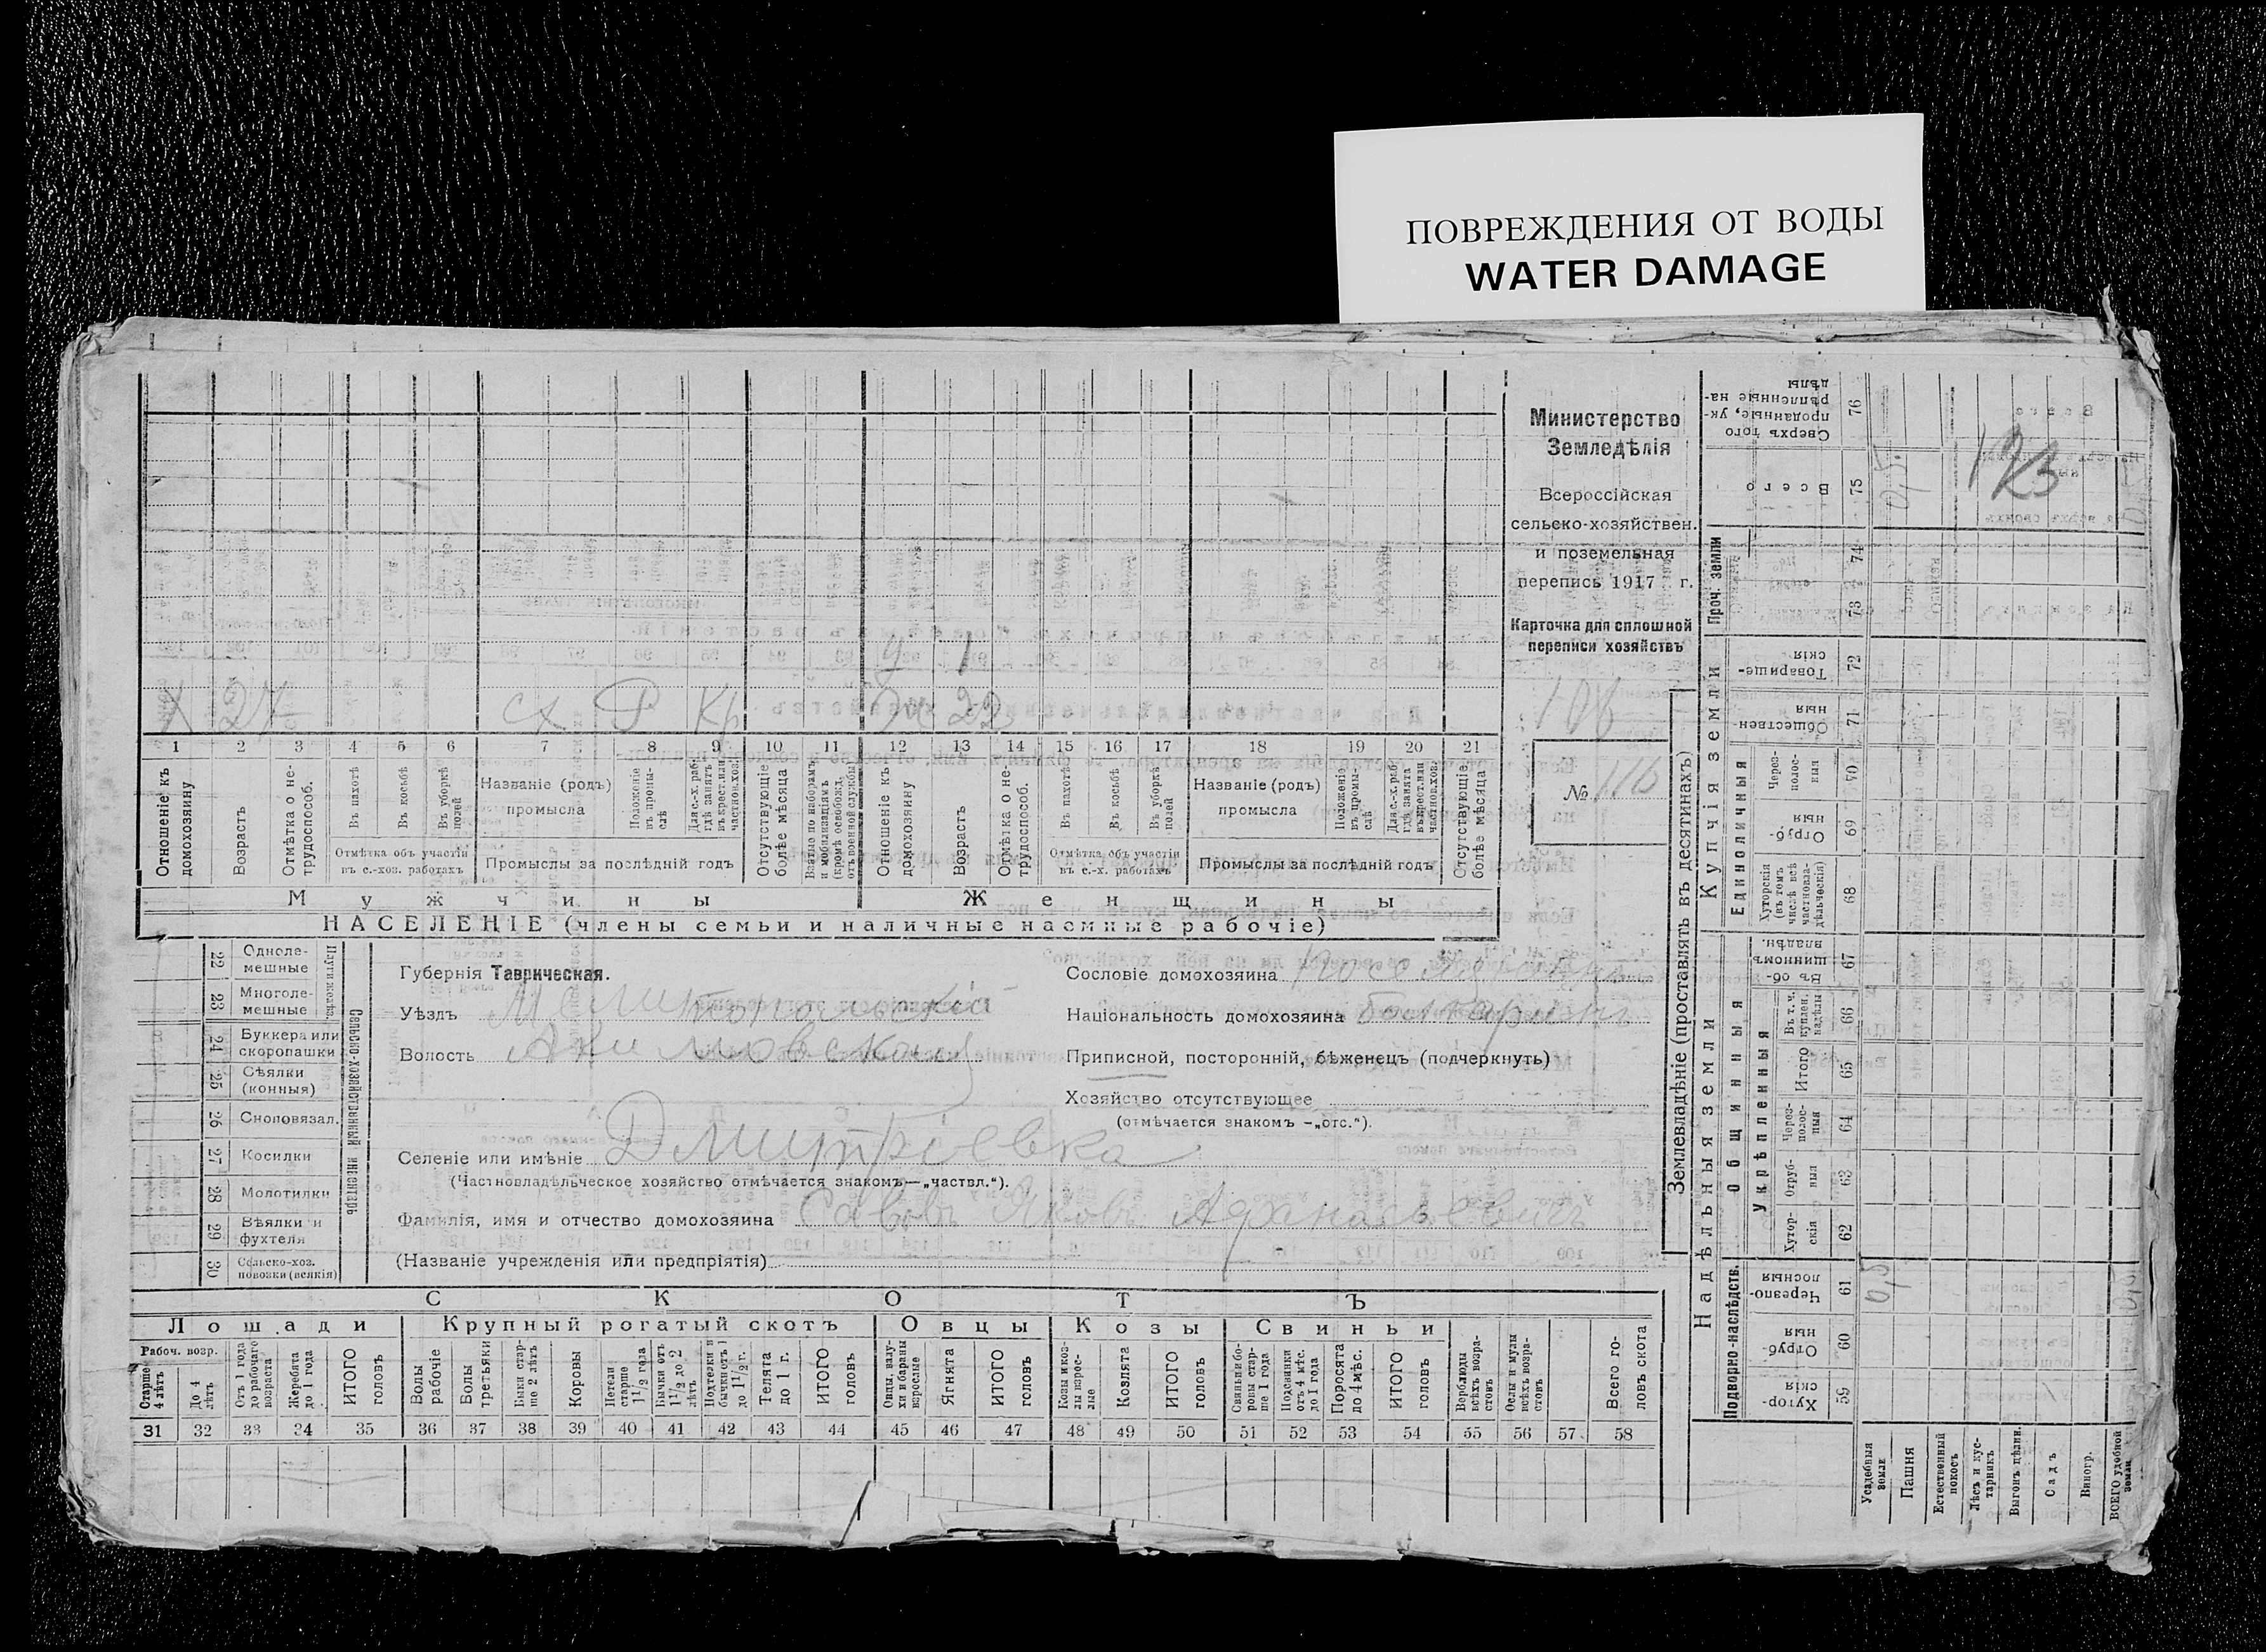 ПОВРЕЖДЕНИЯ ОТ ВОДЫ
WATER DAMAGE
Министерство
Земледѣлія
Всероссійская
сельско-хозяйствен.
и поземельная
перепись 1917 г.
Карточка для сплошной
переписи хозяйствъ
106
№ 116
У 1
Х 27 сх Р Кр Ж 22
1 2 3 4 5 6 7 8 9 10 11 12 13 14 15 16 17 18 19 20 21
Отношеніе къ домохозяину
Возрастъ
Отмѣтка о не-трудоспособ.
Въ пахотѣ
Въ косьбѣ
Въ уборкѣ полей
Отмѣтка объ участіи въ с.-хоз. работахъ
Названіе (родъ) промысла
Положеніе въ промы-слѣ
Для с.-х. раб. гдѣ занятъ въ крест. или частновл. хоз.
Промыслы за послѣдній годъ
Отсутствующіе болѣе мѣсяца
Взято по наборамъ и мобилизаціямъ (кромѣ освобожд. отъ военной службы)
Отношеніе къ домохозяину
Возрастъ
Отмѣтка о не-трудоспособ.
Въ пахотѣ
Въ косьбѣ
Въ уборкѣ полей
Отмѣтка объ участіи въ с.-х. работахъ
Названіе (родъ) промысла
Положеніе въ промы-слѣ
Для с.-х. раб. гдѣ занята въ крест. или частновл. хоз.
Промыслы за послѣдній годъ
Отсутствующіе болѣе мѣсяца
Мужчины Женщины
НАСЕЛЕНІЕ (члены семьи и наличные наемные рабочіе)
Сельско-хозяйственный инвентарь
22 Одноле-мешные
23 Многоле-мешные
24 Буккера или скоропашки
25 Сѣялки (конныя)
26 Сноповязал.
27 Косилки
28 Молотилки
29 Вѣялки и фухтеля
30 Сельско-хоз. повозки (всякія)
Губернія Таврическая.
Уѣздъ Мелитопольскій
Волость Акимовская
Сословіе домохозяина поселянинъ
Національность домохозяина болгаринъ
Приписной, посторонній, бѣженецъ (подчеркнуть)
Хозяйство отсутствующее
(отмѣчается знакомъ —„отс.“).
Селеніе или имѣніе Дмитріевка
(Частновладѣльческое хозяйство отмѣчается знакомъ—„частвл.“).
Фамилія, имя и отчество домохозяина Савовъ Яковъ Афанасьевичъ
(Названіе учрежденія или предпріятія)
СКОТЪ
Лошади Крупный рогатый скотъ Овцы Козы Свиньи
Рабоч. возр.
Старше 4 лѣтъ
До 4 лѣтъ
Отъ 1 года до рабочаго возраста
Жеребята до 1 года
ИТОГО головъ
Волы рабочіе
Волы третьяки
Быки стар-ше 2 лѣтъ
Коровы
Нетели старше 1 1/2 года
Бычки отъ 1 1/2 до 2 лѣтъ
Подтелки и бычки отъ 1 до 1 1/2 г.
Телята до 1 г.
ИТОГО головъ
Овцы, валу-хи и бараны взрослые
Ягнята
ИТОГО головъ
Козы и коз-лы взрос-лые
Козлята
ИТОГО головъ
Свиньи и бо-ровы стар-ше 1 года
Подсвинки отъ 4 мѣс. до 1 года
Поросята до 4 мѣс.
ИТОГО головъ
Верблюды всѣхъ возра-стовъ
Ослы и мулы всѣхъ возра-стовъ
Всего го-ловъ скота
31 32 33 34 35 36 37 38 39 40 41 42 43 44 45 46 47 48 49 50 51 52 53 54 55 56 57 58
Землевладѣніе (проставлять въ десятинахъ)
Надѣльныя земли Купчія земли Проч. земли
Подворно-наслѣдств.
Общинныя
Укрѣпленныя
Единоличныя
Хутор-скія 59
Отруб-ныя 60
Черезпо-лосныя 61 0,5
Хутор-скія 62
Отруб-ныя 63
Через-полос-ныя 64
Итого 65
Въ т. ч. куплен. надѣлы 66
Въ об-щинномъ владѣн. 67
Хуторскія (въ томъ числѣ всѣ частновла-дѣльческія) 68
Отруб-ныя 69
Через-полос-ныя 70
Обществен-ныя 71
Товарище-скія 72
73
74
Всего 75 0,5
Сверхъ того проданные, ук-рѣпленные на-дѣлы 76
123
Усадебныя земли
Пашня
Естественный покосъ
Лѣсъ и кус-тарникъ
Выгонъ цѣлин.
Садъ
Виногр.
ВСЕГО удобной земли